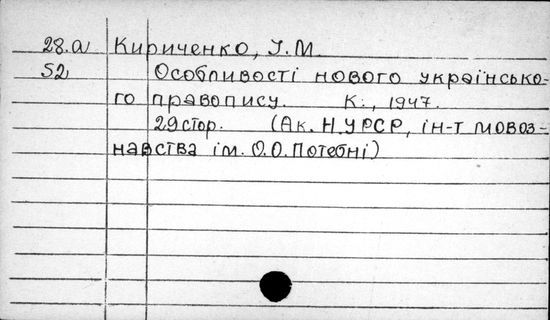 28.а Кириченко, І.М.
52 Особливості нового українсько-
го правопису. К., 1947.
29 стор. (Ак. Н УРСР, ін-т мовоз-
навства ім. О.О.Потебні)